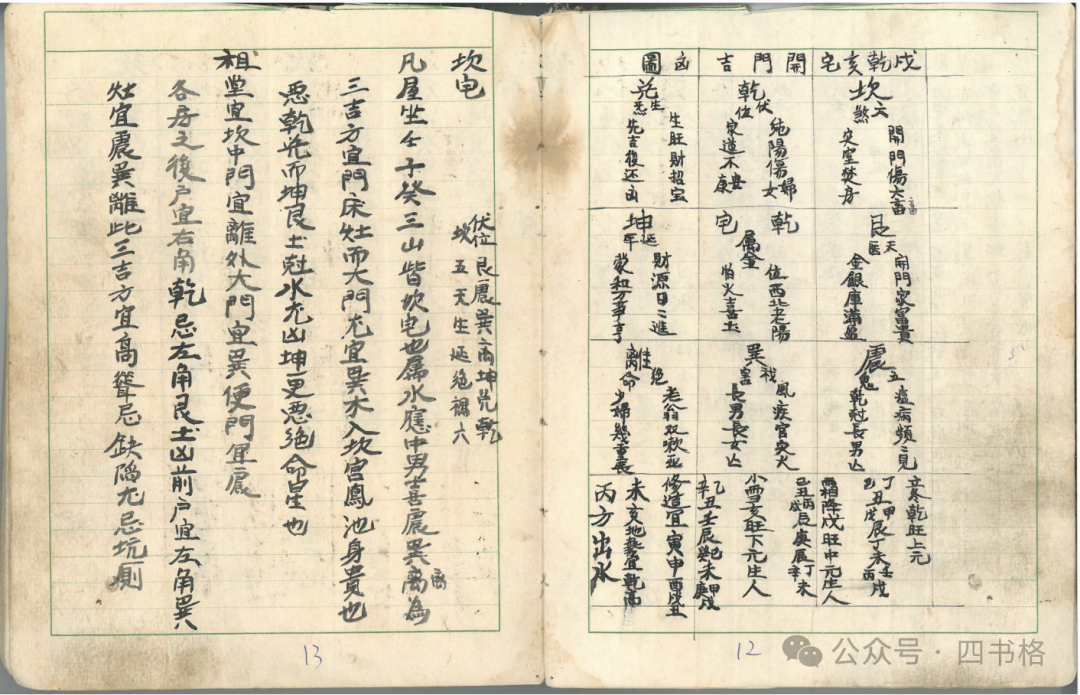 戌乾亥宅開門吉凶圖
坎六煞
開門傷六畜
灾室焚身
乾伏位
純陽傷婦女
家道不安康
兑生炁
生旺財招宝
先吉後还凶
艮天医
開門家富貴
金銀庫滿盈
乾宅屬金
位西北老陽
怕火喜土
坤延年
財源日〻進
蒙和万事亨
震五鬼
瘟病頻〻見
乾尅長男亡
巽祸害
風疾官灾火
長男長女亡
離絶命
老翁双秋亚
少婦幾重喪
立冬乾旺上元
丁丑甲辰丁未壬戌
己戊丙
霜降戌旺中元生人
己丑丙辰庚辰丁未
戊辛
小雪亥旺下元生人
乙丑壬辰癸未甲戌
辛己庚
修造宜寅申酉戌丑
未亥地勢宜乾高
丙方出水
12
坎宅
伏位艮震巽离坤兑乾
坎五天生延绝禍六
凡屋坐壬子癸三山皆坎宅也屬水應中男喜震巽离為
三吉方宜門床灶而大門尤宜巽木入坎宫鳳池身貴也
惡乾兑而坤艮土尅水尤凶坤更惡絶命星也
祖堂宜坎中門宜離外大門宜巽便門宜震
各房之後户宜右角乾忌左角艮土凶前户宜左角巽
灶宜震巽離此三吉方宜高聳忌缺陷尤忌坑厠
13
公众号·四书格